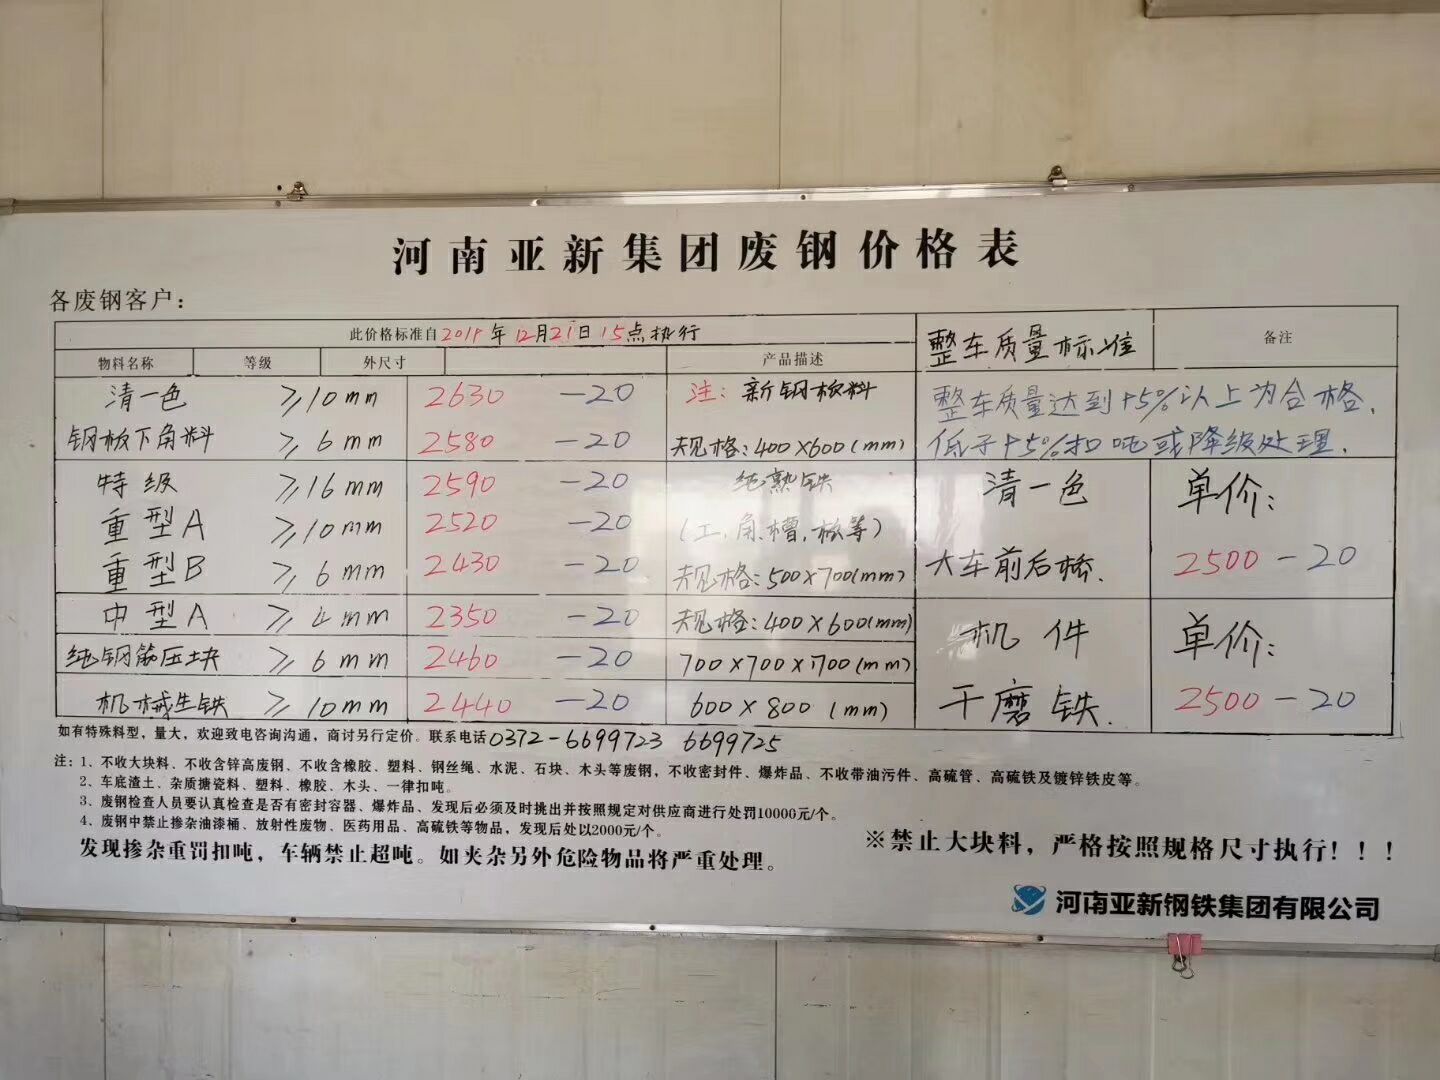 河南亚新集团废钢价格表
各废钢客户:
此价格标准自2018年12月21日15点执行
整车质量标准
备注
物料名称 等级 外尺寸 产品描述
清一色 ≥10mm 2630 -20 注:新钢板料
整车质量达到95%以上为合格.
钢板下角料 ≥6mm 2580 -20 规格:400×600(mm)
低于95%扣吨或降级处理.
特级 ≥16mm 2590 -20 纯熟铁
清一色 单价:
重型A ≥10mm 2520 -20 (工.角.槽.板等)
重型B ≥6mm 2430 -20 规格:500×700(mm)
大车前后桥. 2500-20
中型A ≥4mm 2350 -20 规格:400×600(mm)
机件 单价:
纯钢筋压块 ≥6mm 2460 -20 700×700×700(mm)
机械生铁 ≥10mm 2440 -20 600×800(mm)
干磨铁. 2500-20
如有特殊料型,量大,欢迎致电咨询沟通,商讨另行定价。联系电话0372-6699723 6699725
注:1、不收大块料、不收含锌高废钢、不收含橡胶、塑料、钢丝绳、水泥、石块、木头等废钢,不收密封件、爆炸品、不收带油污件、高硫管、高硫铁及镀锌铁皮等。
2、车底渣土、杂质搪瓷料、塑料、橡胶、木头、一律扣吨。
3、废钢检查人员要认真检查是否有密封容器、爆炸品、发现后必须及时挑出并按照规定对供应商进行处罚10000元/个。
4、废钢中禁止掺杂油漆桶、放射性废物、医药用品、高硫铁等物品,发现后处以2000元/个。
发现掺杂重罚扣吨,车辆禁止超吨。如夹杂另外危险物品将严重处理。
※禁止大块料,严格按照规格尺寸执行!!!
河南亚新钢铁集团有限公司